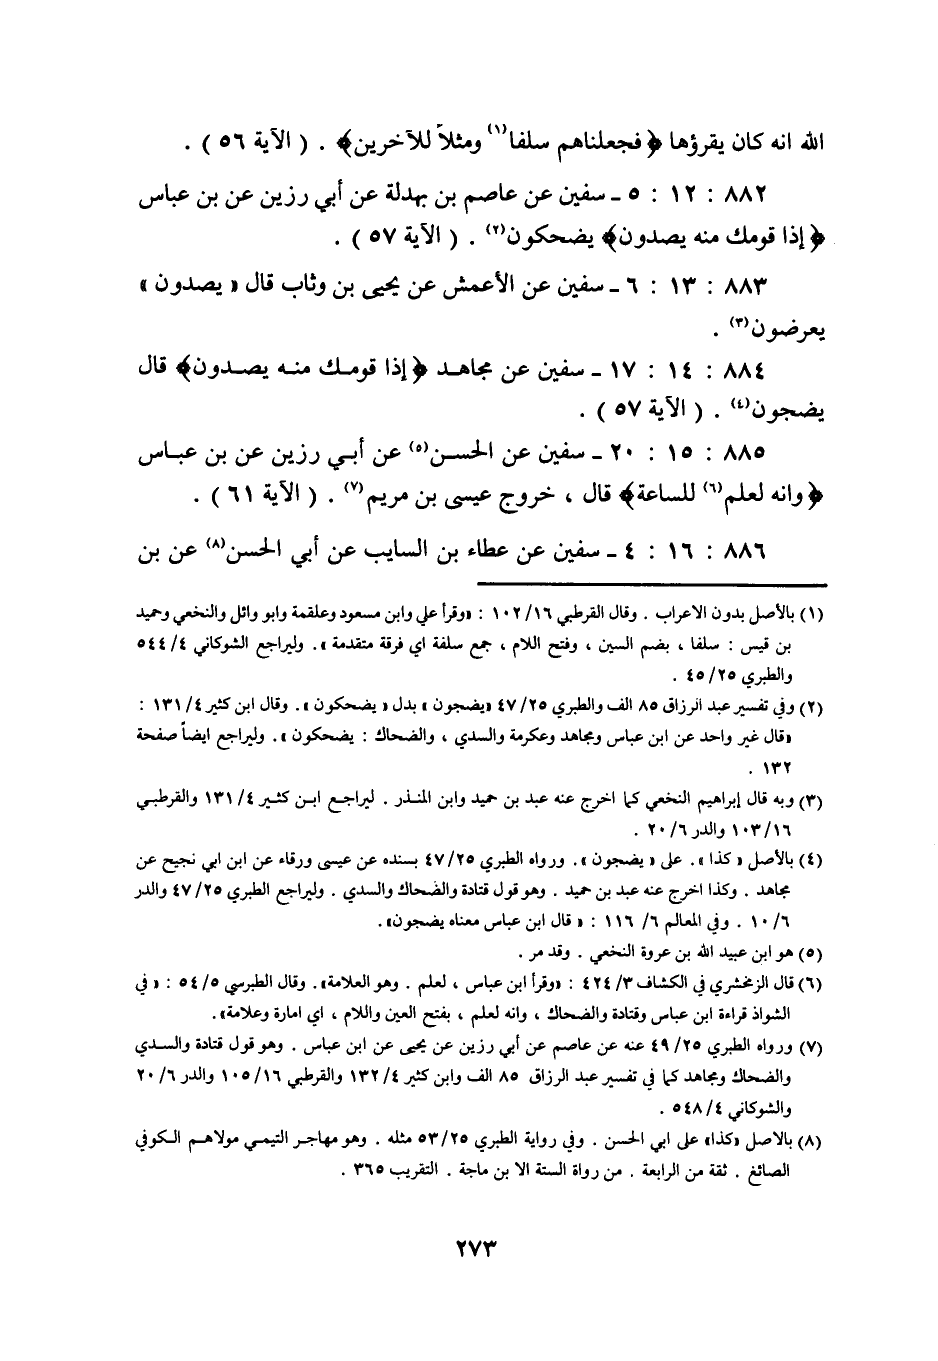 الله انه كان يقرؤها ﴿ فجعلناهم سلفا(١) ومثلاً للآخرين﴾ . ( الآية ٥٦ ) .
٨٨٢ : ١٢ : ٥ ـ سفين عن عاصم بن بهدلة عن أبي رزين عن بن عباس
﴿ إذا قومك منه يصدون﴾ يضحكون(٢) . ( الآية ٥٧ ) .
٨٨٣ : ١٣ : ٦ ـ سفين عن الأعمش عن يحيى بن وثاب قال « يصدون »
يعرضون(٣) .
٨٨٤ : ١٤ : ١٧ ـ سفين عن مجاهد ﴿ إذا قومك منه يصدون﴾ قال
يضجون(٤) . ( الآية ٥٧ ) .
٨٨٥ : ١٥ : ٢٠ ـ سفين عن الحسن(٥) عن أبي رزين عن بن عباس
﴿ وانه لعلم(٦) للساعة﴾ قال ، خروج عيسى بن مريم(٧) . ( الآية ٦١ ) .
٨٨٦ : ١٦ : ٤ ـ سفين عن عطاء بن السايب عن أبي الحسن(٨) عن بن
(١) بالأصل بدون الاعراب . وقال القرطبي ١٠٢/١٦ : «وقرأ علي وابن مسعود وعلقمة وابو وائل والنخعي وحميد
بن قيس : سلفا ، بضم السين ، وفتح اللام ، جمع سلفة اي فرقة متقدمة ». وليراجع الشوكاني ٥٤٤/٤
والطبري ٤٥/٢٥ .
(٢) وفي تفسير عبد الرزاق ٨٥ الف والطبري ٤٧/٢٥ «يضجون » بدل « يضحكون ». وقال ابن كثير ١٣١/٤ :
«قال غير واحد عن ابن عباس ومجاهد وعكرمة والسدي ، والضحاك : يضحكون ». وليراجع ايضاً صفحة
١٣٢ .
(٣) وبه قال إبراهيم النخعي كما اخرج عنه عبد بن حميد وابن المنذر . ليراجع ابن كثير ١٣١/٤ والقرطبي
١٠٣/١٦ والدر ٢٠/٦ .
(٤) بالأصل « كذا ». على « يضجون ». ورواه الطبري ٤٧/٢٥ بسنده عن عيسى ورقاء عن ابن ابي نجيح عن
مجاهد . وكذا اخرج عنه عبد بن حميد . وهو قول قتادة والضحاك والسدي . وليراجع الطبري ٤٧/٢٥ والدر
١٠/٦ . وفي المعالم ٦/ ١١٦ : « قال ابن عباس معناه يضجون».
(٥) هو ابن عبيد الله بن عروة النخعي . وقد مر .
(٦) قال الزمخشري في الكشاف ٤٢٤/٣ : «وقرأ ابن عباس ، لعلم . وهو العلامة». وقال الطبرسي ٥٤/٥ : « في
الشواذ قراءة ابن عباس وقتادة والضحاك ، وانه لعلم ، بفتح العين واللام ، اي امارة وعلامة».
(٧) ورواه الطبري ٤٩/٢٥ عنه عن عاصم عن أبي رزين عن يحيى عن ابن عباس . وهو قول قتادة والسدي
والضحاك ومجاهد كما في تفسير عبد الرزاق ٨٥ الف وابن كثير ١٣٢/٤ والقرطبي ١٠٥/١٦ والدر ٢٠/٦
والشوكاني ٥٤٨/٤ .
(٨) بالاصل «كذا» على ابي الحسن . وفي رواية الطبري ٥٣/٢٥ مثله . وهو مهاجر التيمي مولاهم الكوفي
الصائغ . ثقة من الرابعة . من رواة الستة الا بن ماجة . التقريب ٣٦٥ .
٢٧٣